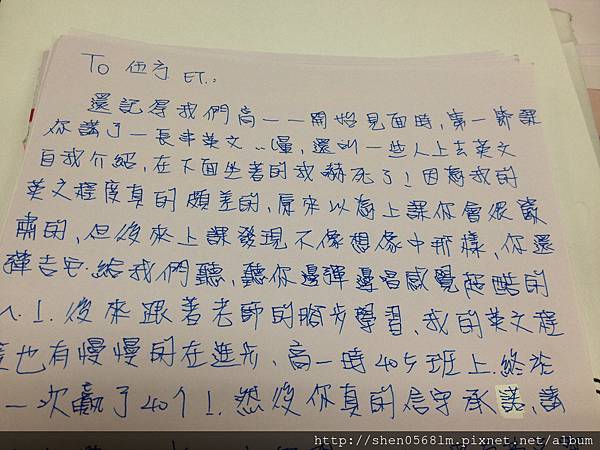 To 伍方 ET.:
還記得我們高一一開始見面時,第一節課
你講了一長串英文..喔,還叫一些人上去英文
自我介紹,在下面坐著的我嚇死了!因為我的
英文程度真的頗差的,原來以為上課你會很嚴
肅的,但後來上課發現不像想像中那樣,你還
彈吉它給我們聽,聽你邊彈邊唱感覺挺酷的
!後來跟著老師的腳步學習,我的英文程
度也有慢慢的在進步,高一時405班上終於
一次贏了40个!然後你真的信守承諾,請
http://shen0568lm.pixnet.net/album